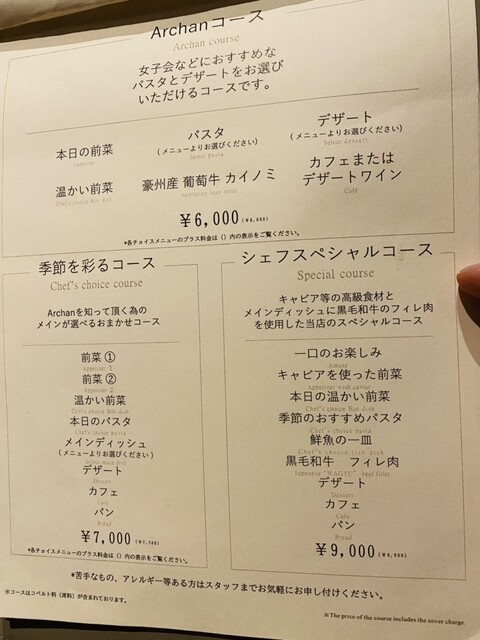 Archanコース
Archan course
女子会などにおすすめな
パスタとデザートをお選び
いただけるコースです。
本日の前菜
Appetizer
パスタ
(メニューよりお選びください)
Select pasta
デザート
(メニューよりお選びください)
Select dessert
温かい前菜
Chef's choice Hot dish
豪州産 葡萄牛 カイノミ
カフェまたは
デザートワイン
Café
¥6,000(¥6,600)
*各チョイスメニューのプラス料金は()内の表示をご覧ください。
季節を彩るコース
Chef's choice course
Archanを知って頂く為の
メインが選べるおまかせコース
前菜①
Appetizer ①
前菜②
Appetizer ②
温かい前菜
Chef's choice Hot dish
本日のパスタ
Chef's choice pasta
メインディッシュ
(メニューよりお選びください)
Select main dish
デザート
Dessert
カフェ
Café
パン
Bread
¥7,000(¥7,700)
*各チョイスメニューのプラス料金は()内の表示をご覧ください。
シェフスペシャルコース
Special course
キャビア等の高級食材と
メインディッシュに黒毛和牛のフィレ肉
を使用した当店のスペシャルコース
一口のお楽しみ
Amuse
キャビアを使った前菜
Appetizer with caviar
本日の温かい前菜
Chef's choice Hot dish
季節のおすすめパスタ
Chef's choice pasta
鮮魚の一皿
Chef's choice fish dish
黒毛和牛 フィレ肉
Japanese "WAGYU" beef fillet
デザート
Dessert
カフェ
Café
パン
Bread
¥9,000(¥9,900)
*苦手なもの、アレルギー等ある方はスタッフまでお気軽にお申し付けください。
※コースはコペルト料(席料)が含まれております。
※The price of the course includes the cover charge.